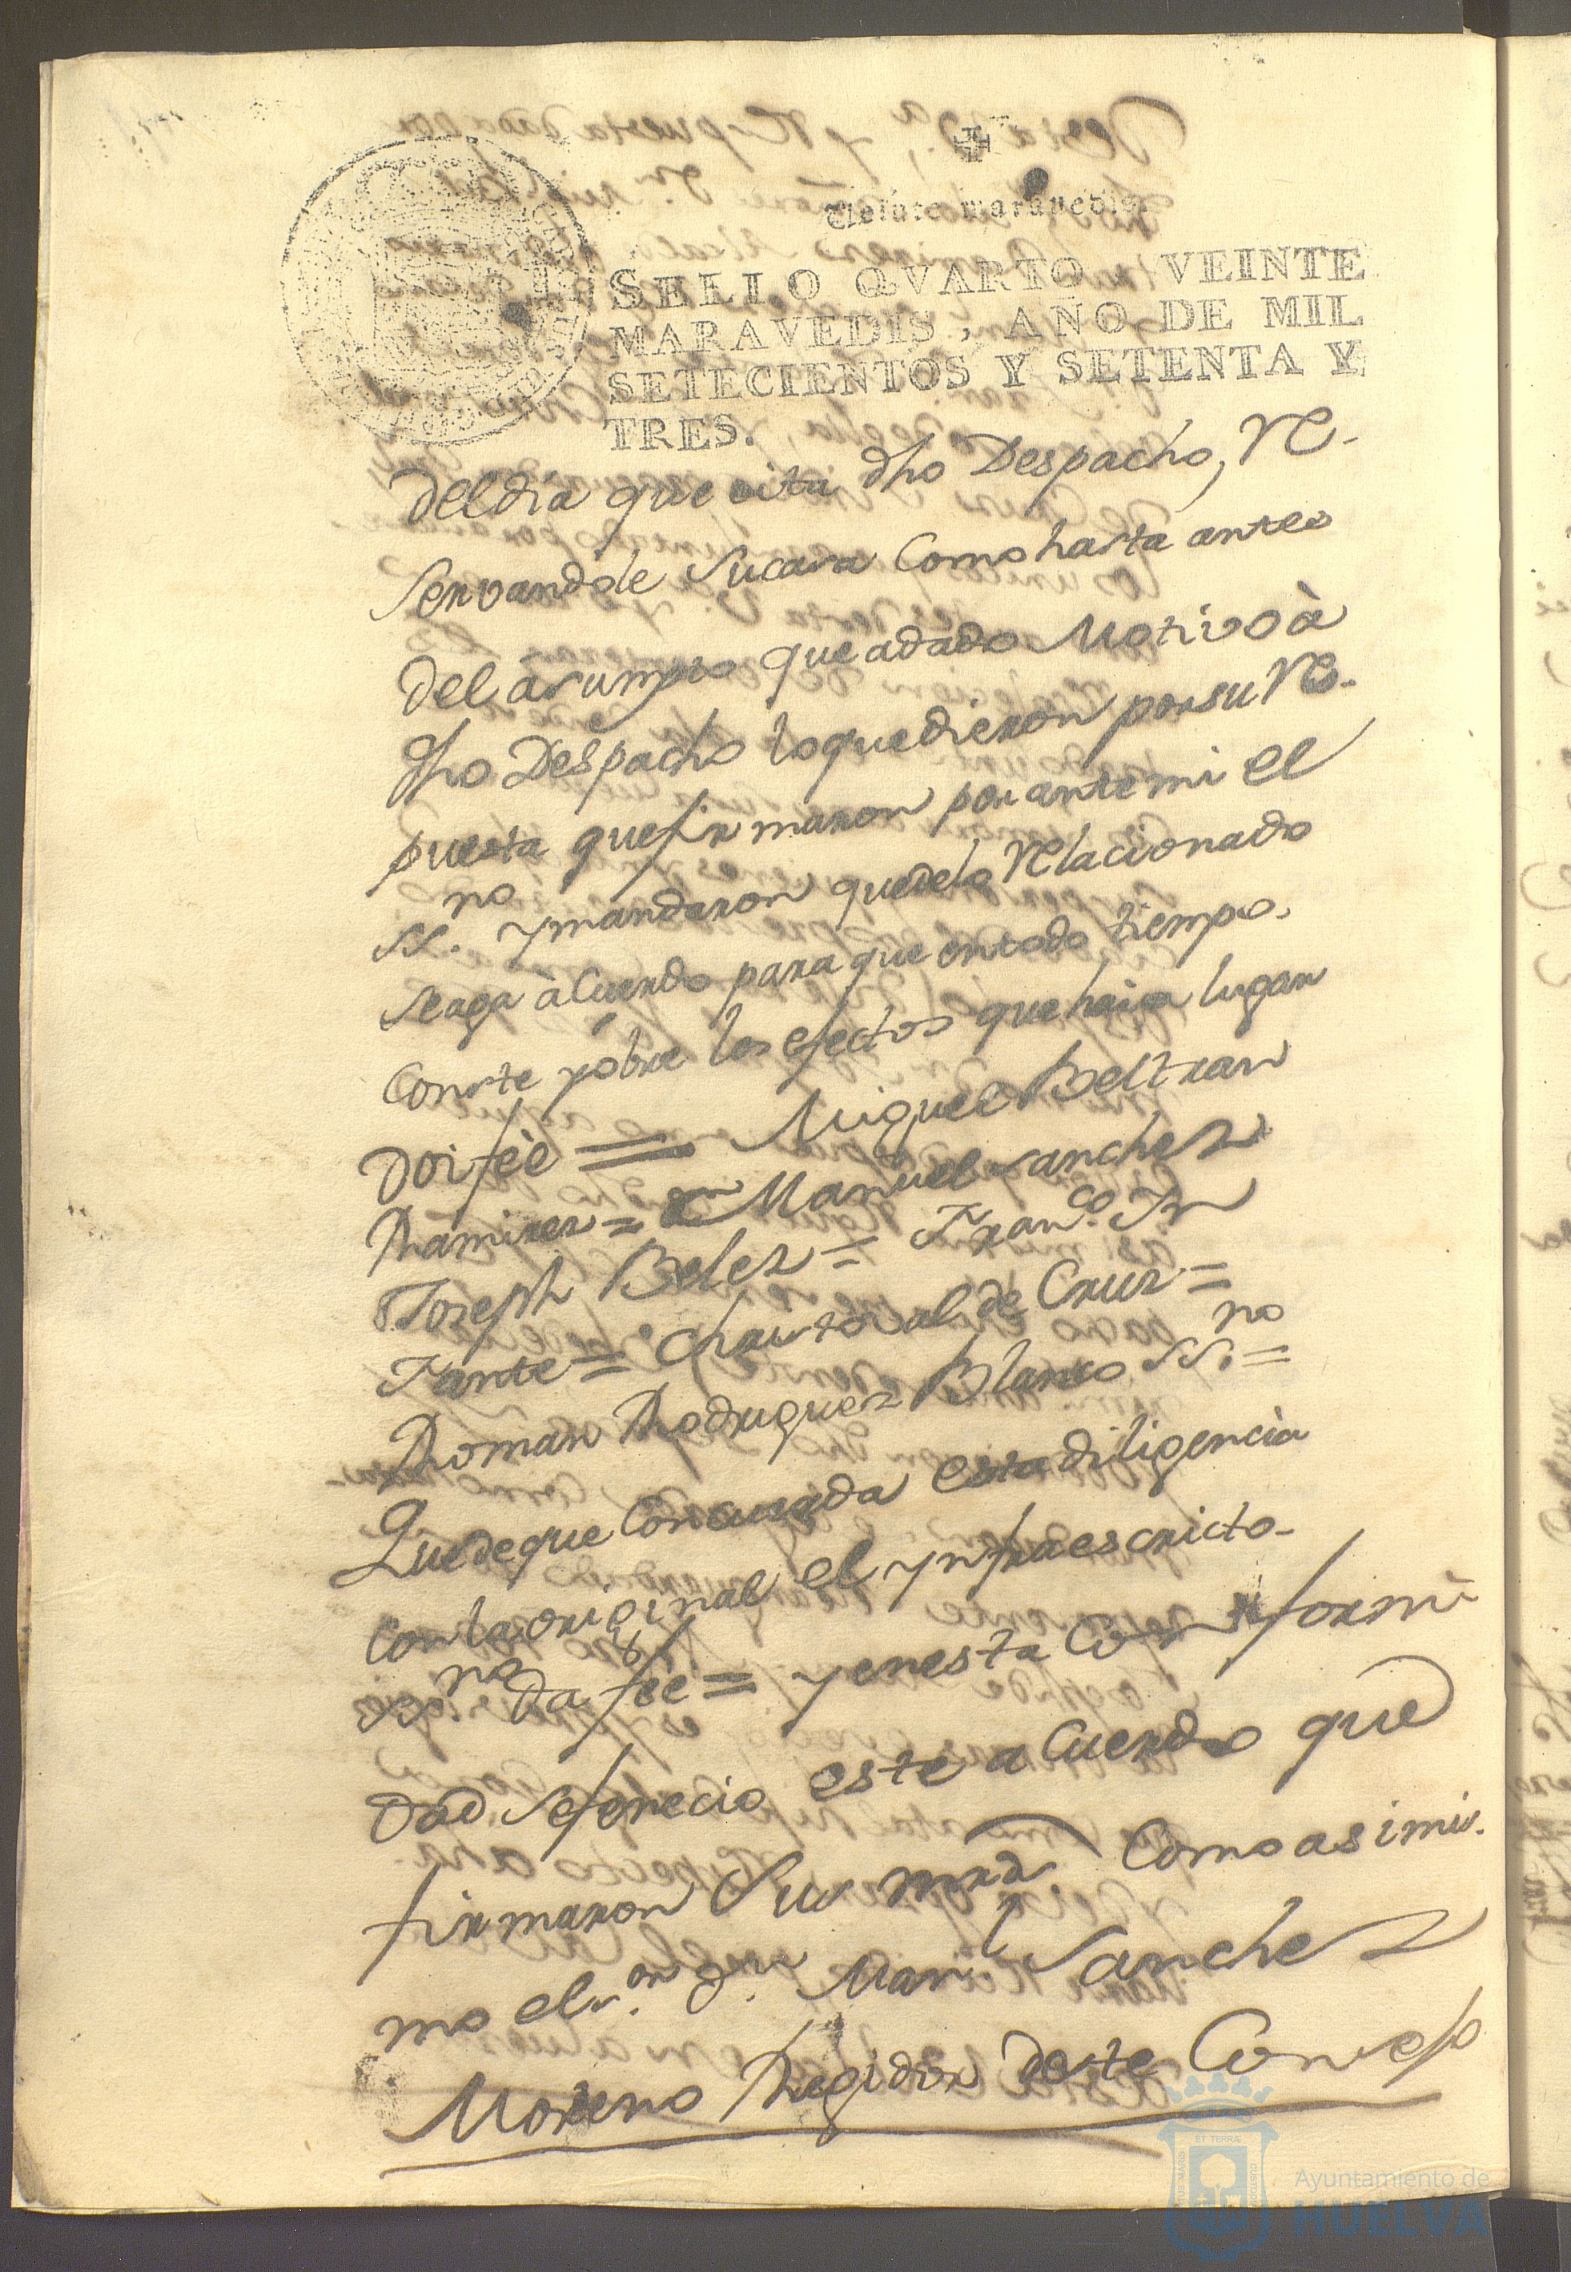 Veinte maravedis.
SELLO QVARTO, VEINTE
MARAVEDIS, AÑO DE MIL
SETECIENTOS Y SETENTA Y
TRES.
deldia que cita dho Despacho, Re-
servandole su casa Como hasta antes
del asumpto que adado Motivo à
dho Despacho lo que dieron por su Res-
puesta que firmaron por ante mi el
ss.no y mandaron que de lo Relacionado
se aga àCuerdo para que en todo tiempo
Conste y obre los efectos que haia lugar
Doi fèè = Miguel Beltran
Ramirez = Dn Manuel Sanchez
Joseph Belez = Franco. In
fante = Christoval de Cruz =
Roman Rodriguez Blanco ss.no =
Quede que Concuerda esta diligencia
Con la original el ynfraescricto
ss.no da fèè = y en esta Conformi
dad se fenecio este aCuerdo que
firmaron Sus mrds. Como asimis-
mo el s.or Dn. Manl Sanchez
Moreno Regidor deste Consejo
ET TERRÆ
Ayuntamiento de
HUELVA